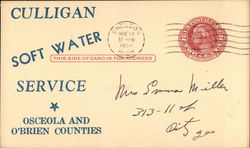 CULLIGAN
SOFT WATER
THIS SIDE OF CARD IS FOR ADDRESS
SERVICE
OSCEOLA AND
O'BRIEN COUNTIES
Mrs Emma Miller
313-11 st
City